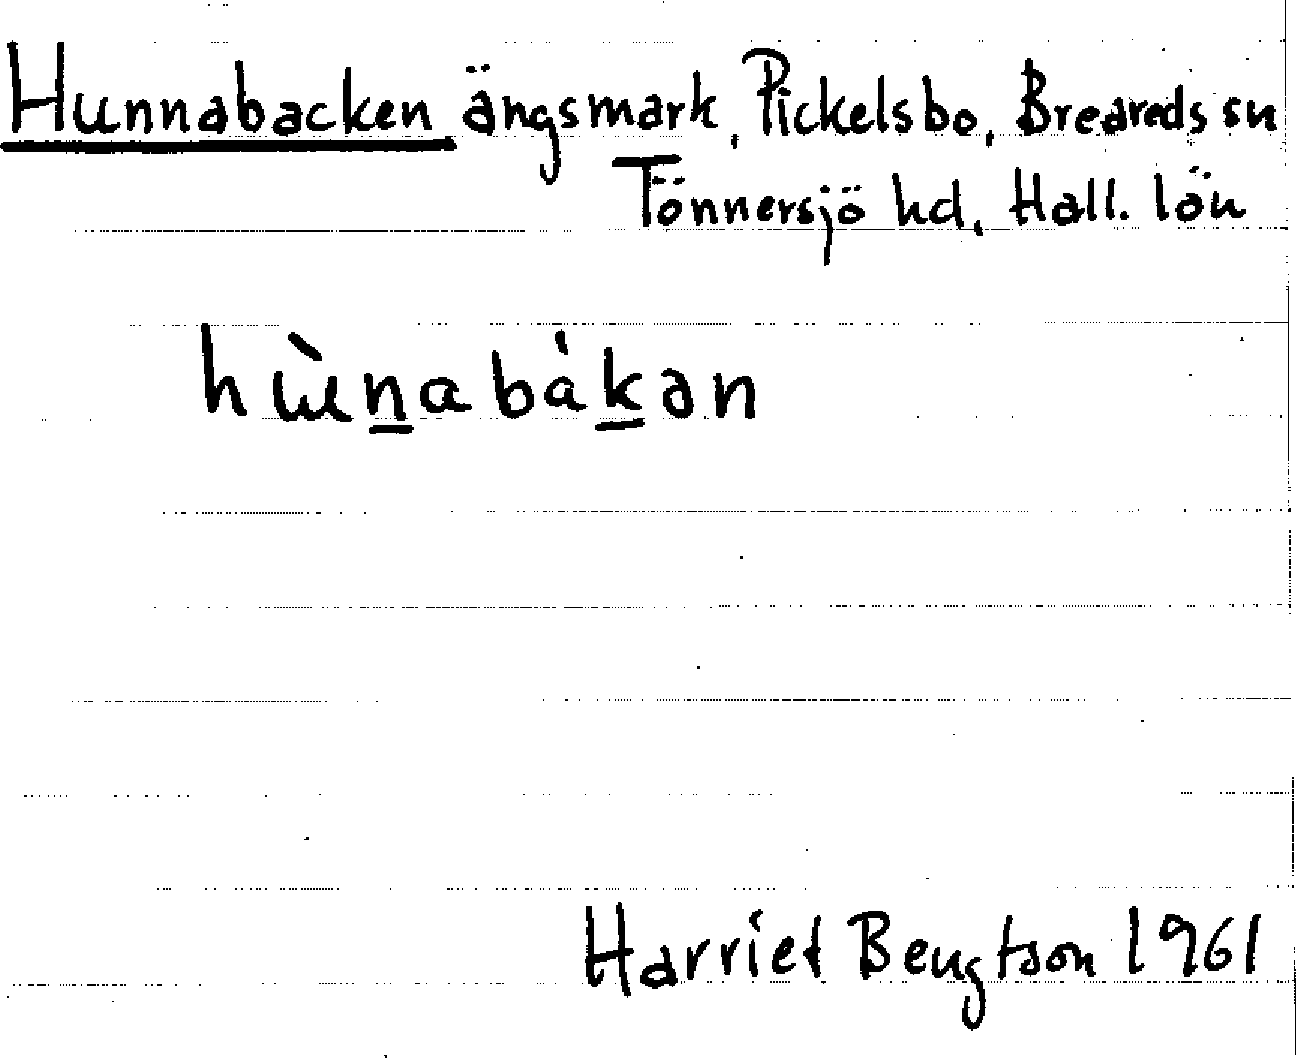 Hunnabacken ängsmark, Pickelsbo, Breareds sn
Tönnersjö hd, Hall. län
hɯ̀n̲abàk̲ən
Harriet Bengtson 1961